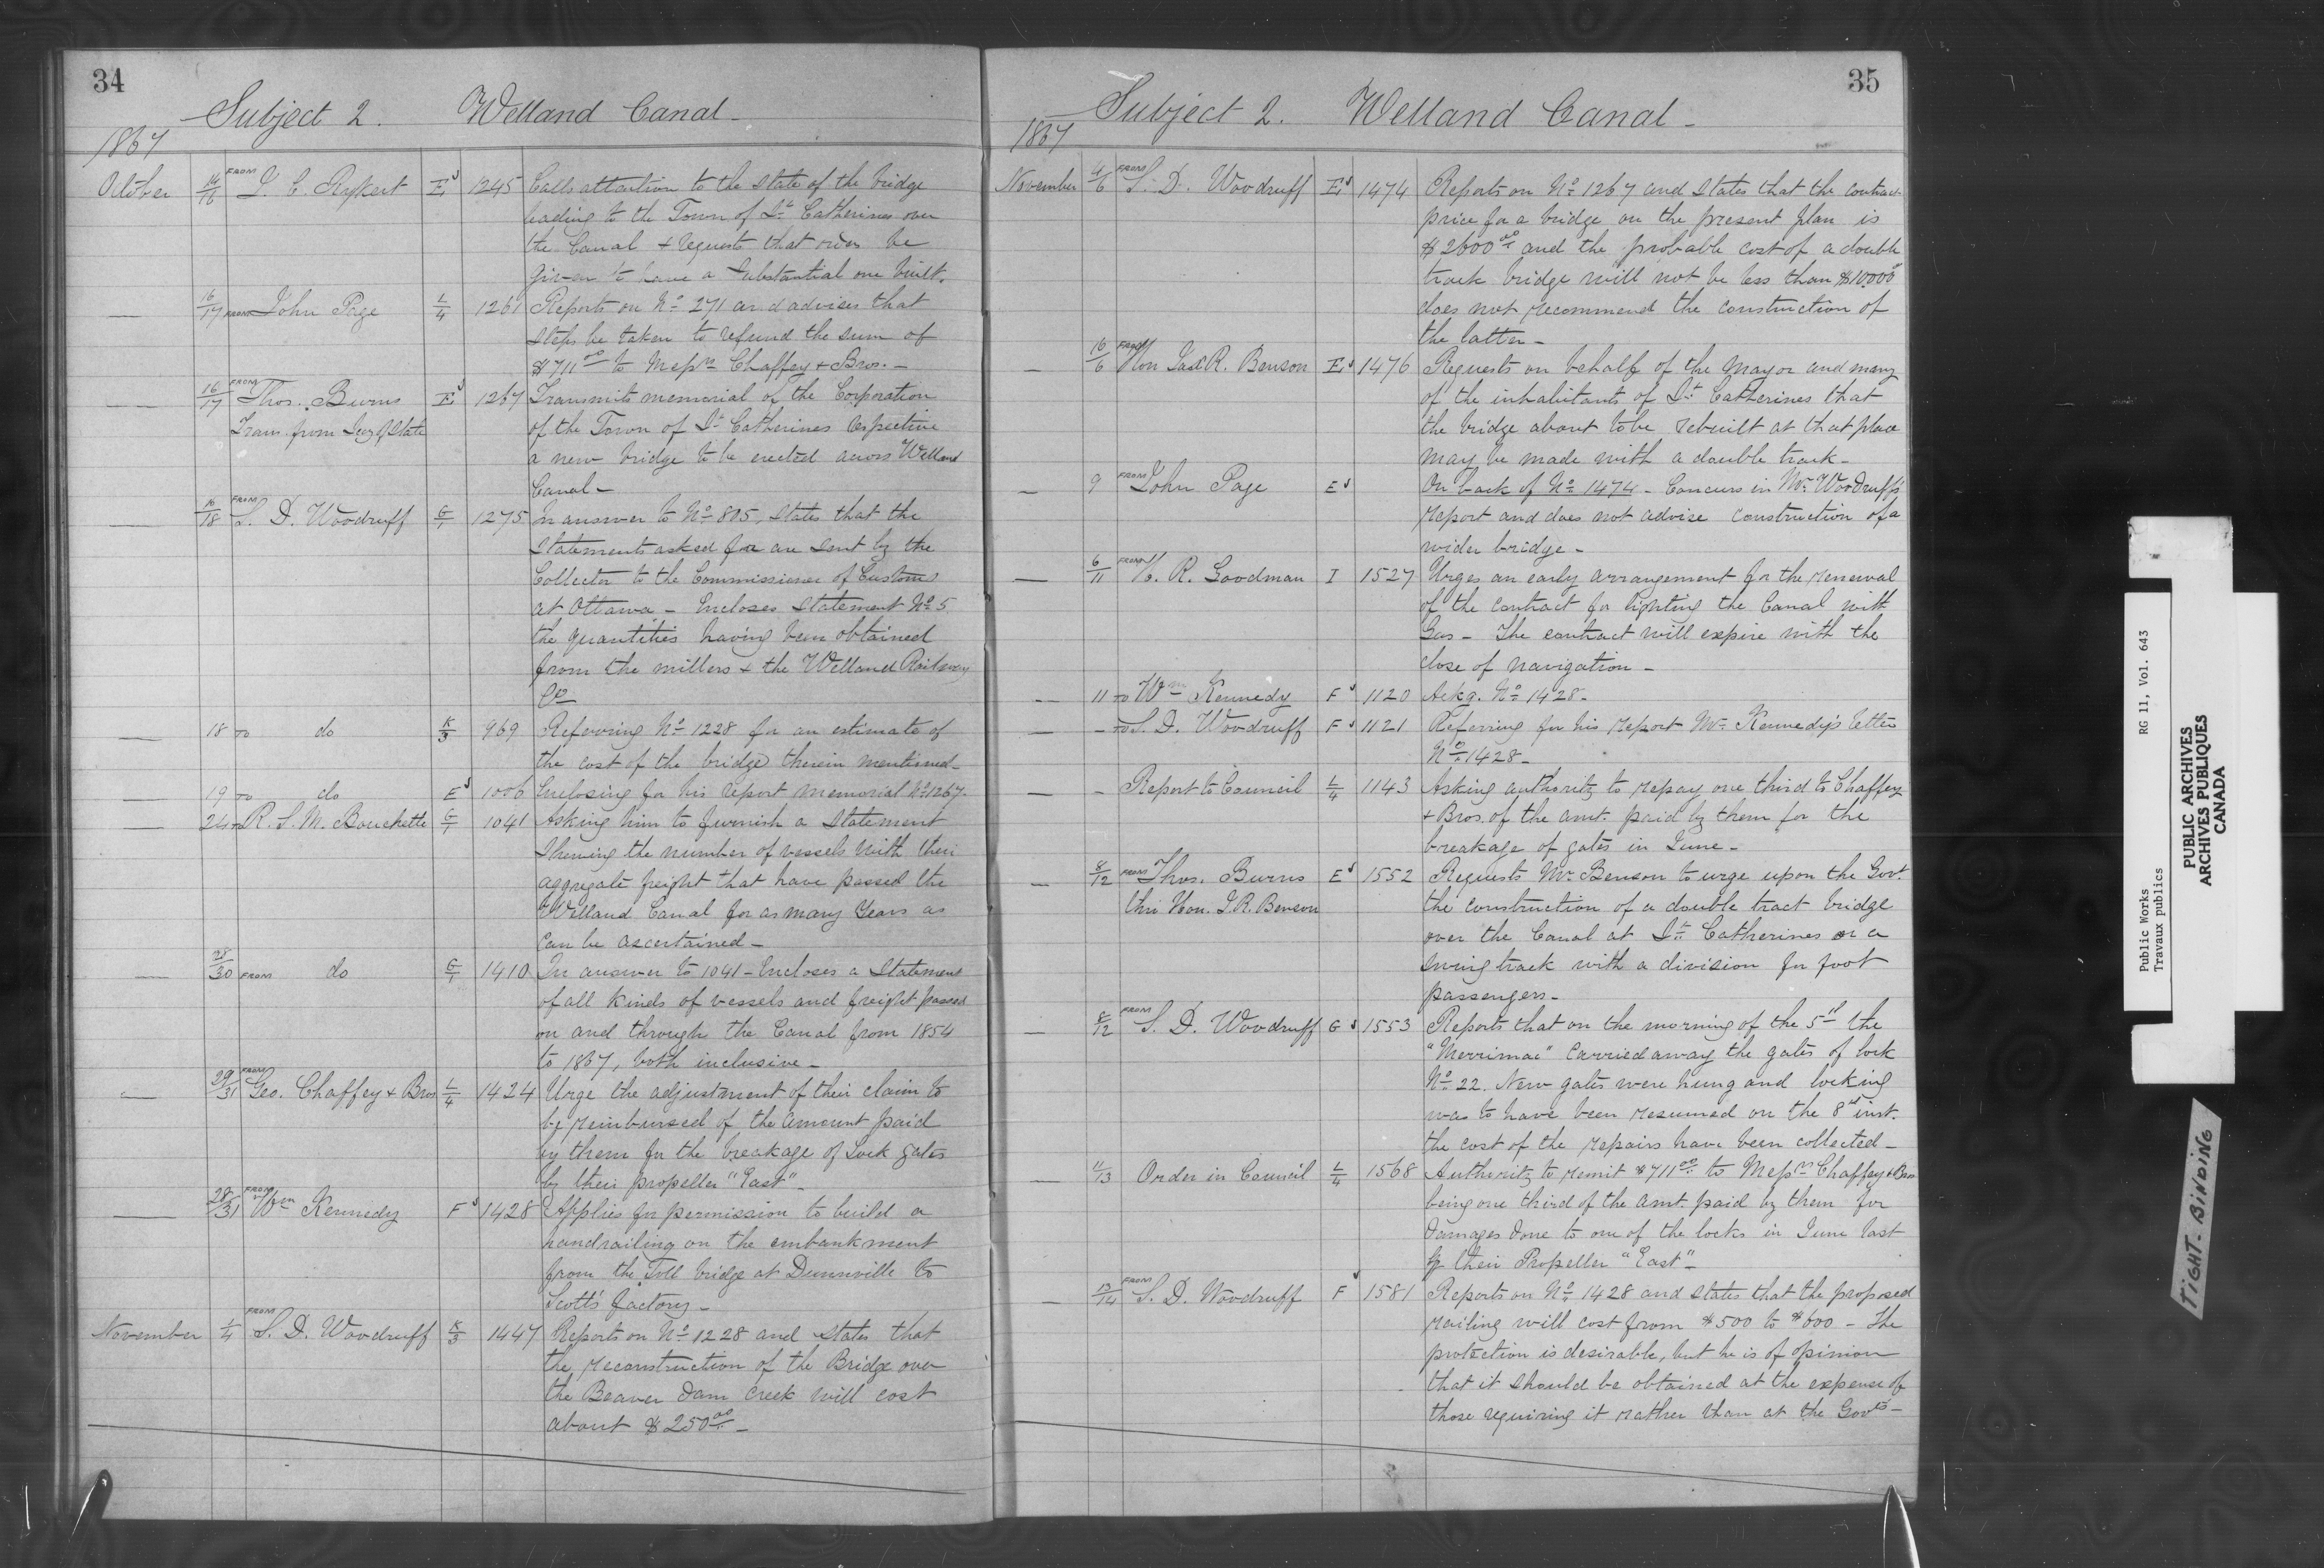 34
Subject 2. Welland Canal -
1867
October 14/16 FROM J. C. Rykert E 1245 Calls attention to the state of the bridge
leading to the Town of St. Catherines over
the Canal + requests that orders be
given to have a substantial one built.
— 16/17 FROM John Page L/4 1261 Reports on No. 271 and advises that
steps be taken to refund the sum of
$711.00 to Messrs Chaffey + Bros. -
— 16/17 FROM Thos. Burns E 1267 Transmits memorial of the Corporation
Trans. from Secy of State of the Town of St. Catherines respecting
a new bridge to be erected across Welland
Canal -
— 16/18 FROM S. D. Woodruff G/1 1275 In answer to No. 805, states that the
statements asked for are sent by the
Collector to the Commissioner of Customs
at Ottawa - Encloses Statement No. 5
the quantities having been obtained
from the millers + the Welland Railway
Co
— 18 TO do K/3 969 Referring No. 1228 for an estimate of
the cost of the bridge therein mentioned -
— 19 TO do E 1006 Enclosing for his report memorial No. 1267.
— 24 TO R. S. M. Bouchette G/1 1041 Asking him to furnish a statement
shewing the number of vessels with their
aggregate freight that have passed the
Welland Canal for as many years as
can be ascertained -
— 28/30 FROM do G/1 1410 In answer to 1041 - Encloses a Statement
of all kinds of vessels and freight passed
on and through the Canal from 1854
to 1867, both inclusive -
— 29/31 FROM Geo. Chaffey + Bros L/4 1424 Urge the adjustment of their claim to
be reimbursed of the amount paid
by them for the breakage of Lock gates
by their propeller "East" -
— 28/31 FROM Wm Kennedy F 1428 Applies for permission to build a
handrailing on the embankment
from the Toll bridge at Dunnville to
Scott's factory -
November 1/4 FROM S. D. Woodruff K/3 1447 Reports on No. 1228 and states that
the reconstruction of the Bridge over
the Beaver dam Creek will cost
about $250.00 -
35
Subject 2. Welland Canal -
1867
November 4/6 FROM S. D. Woodruff E 1474 Reports on No. 1267 and states that the contract
price for a bridge on the present plan is
$2600.00 and the probable cost of a double
track bridge will not be less than $10,000
does not recommend the construction of
the latter -
— 16/6 FROM Hon Jas R. Benson E 1476 Requests on behalf of the Mayor and many
of the inhabitants of St. Catherines that
the bridge about to be rebuilt at that place
may be made with a double track -
— 9 FROM John Page E On back of No. 1474 - Concurs in Mr. Woodruff's
report and does not advise construction of a
wider bridge -
— 6/11 FROM H. R. Goodman I 1527 Urges an early arrangement for the renewal
of the contract for lighting the Canal with
Gas - The contract will expire with the
close of navigation -
— 11 TO Wm Kennedy F 1120 Ackg. No. 1428 -
— - TO S. D. Woodruff F 1121 Referring for his report Mr. Kennedy's letter
No. 1428 -
— - Report to Council L/4 1143 Asking authority to repay one third to Chaffey
+ Bros. of the amt. paid by them for the
breakage of gates in June -
— 8/12 FROM Thos. Burns E 1552 Requests Mr. Benson to urge upon the Govt.
thro Hon. J. R. Benson the construction of a double tract bridge
over the Canal at St. Catherines or a
swing track with a division for foot
passengers -
— 8/12 FROM S. D. Woodruff G 1553 Reports that on the morning of the 5th the
"Merrimac" carried away the gates of lock
No. 22. New gates were hung and locking
was to have been resumed on the 8th inst.
the cost of the repairs have been collected -
— 11/13 Order in Council L/4 1568 Authority to remit $711.00 to Messrs Chaffey + Bros
being one third of the amt. paid by them for
damages done to one of the locks in June last
by their Propeller "East" -
— 13/14 FROM S. D. Woodruff F 1581 Reports on No. 1428 and states that the proposed
railing will cost from $500 to $600 - The
protection is desirable, but he is of opinion
that it should be obtained at the expense of
those requiring it rather than at the Govts -
Public Works
Travaux publics
RG 11, Vol. 643
PUBLIC ARCHIVES
ARCHIVES PUBLIQUES
CANADA
TIGHT-BINDING